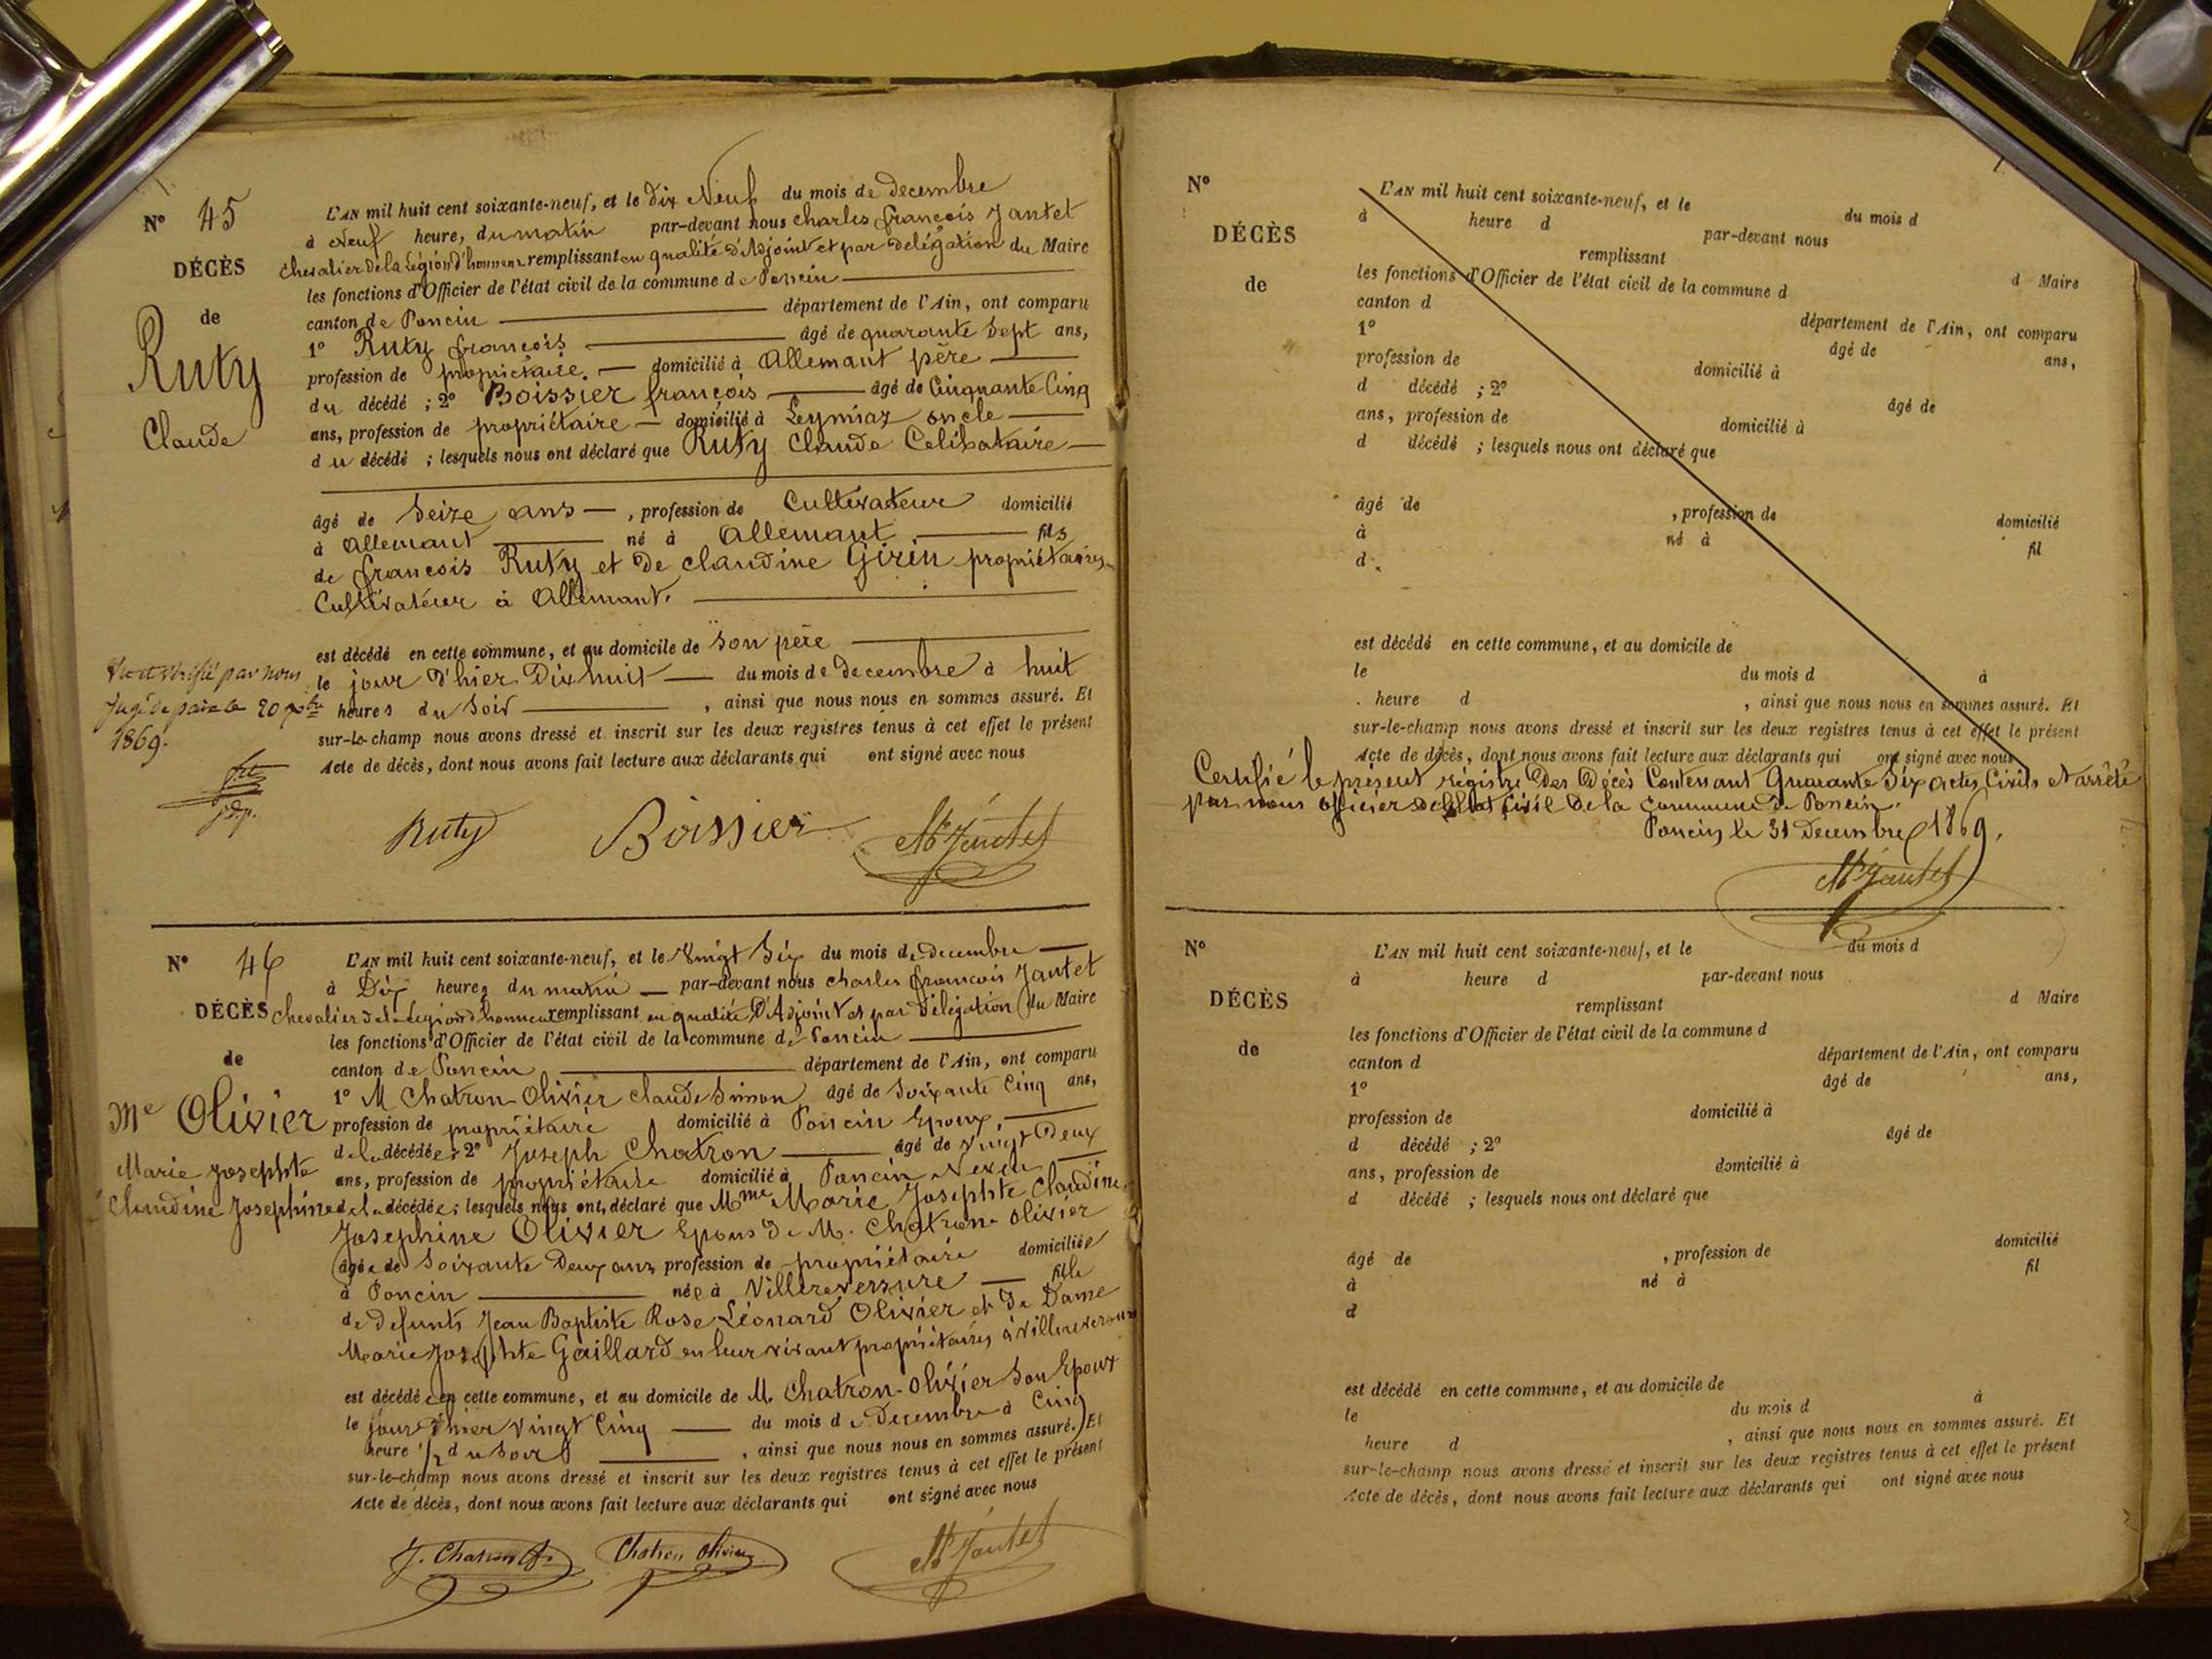 N° 45
DÉCÈS
de
Ruty
Claude
L'AN mil huit cent soixante-neuf, et le dix Neuf du mois de decembre
à Neuf heure, du matin par-devant nous charles françois Jantet
chevalier de la Légion d'honneur remplissant en qualité d'Adjoint et par delégation du Maire
les fonctions d'Officier de l'état civil de la commune de Poncin
canton de Poncin département de l'Ain, ont comparu
1° Ruty françois âgé de quarante Sept ans,
profession de propriétaire domicilié à Allemant père
du décédé ; 2° Boissier françois âgé de Cinquante Cinq
ans, profession de propriétaire domicilié à Leymiaz oncle
du décédé ; lesquels nous ont déclaré que Ruty Claude Celibataire
âgé de Seize ans , profession de Cultivateur domicilié
à Allemant né à Allemant fils
de francois Ruty et de claudine Girin propriétaires
Cultivateur à Allemant.
est décédé en cette commune, et au domicile de Son père
le jour d'hier Dix huit du mois de decembre à huit
heures du Soir , ainsi que nous nous en sommes assuré. Et
sur-le-champ nous avons dressé et inscrit sur les deux registres tenus à cet effet le présent
Acte de décès, dont nous avons fait lecture aux déclarants qui ont signé avec nous
Vu et vérifié par nous
Juge de paix le 20 xbre
1869.
jdp.
Ruty Boissier Jantet
N° 46
DÉCÈS
de
Me Olivier
Marie Josephte
Claudine Josephine
L'AN mil huit cent soixante-neuf, et le Vingt Six du mois de Decembre
à Dix heures du matin par-devant nous charles francois Jantet
chevalier de la Legion d'honneur remplissant en qualité D'Adjoint et par Délégation du Maire
les fonctions d'Officier de l'état civil de la commune de Poncin
canton de Poncin département de l'Ain, ont comparu
1° M Chatron-Olivier Claude Simon âgé de Soixante Cinq ans,
profession de propriétaire domicilié à Poncin Epoux
de la décédée ; 2° Joseph Chatron âgé de Vingt Deux
ans, profession de propriétaire domicilié à Poncin Neveu
de la décédée ; lesquels nous ont déclaré que Mme Marie Josephte Claudine
Josephine Olivier Epous de M. Chatron-Olivier
âgée de Soixante Deux ans profession de propriétaire domiciliée
à Poncin née à Villereversure fille
de defunts Jean Baptiste Rose Léonard Olivier et de Dame
Marie Josephte Gaillard en leur vivant propriétaires à Villereversure
est décédée en cette commune, et au domicile de M. Chatron-Olivier Son Epoux
le jour d'hier Vingt Cinq du mois de Decembre à Cinq
heure 1/2 du Soir , ainsi que nous nous en sommes assuré. Et
sur-le-champ nous avons dressé et inscrit sur les deux registres tenus à cet effet le présent
Acte de décès, dont nous avons fait lecture aux déclarants qui ont signé avec nous
J. Chatron Chatron Olivier Jantet
N°
DÉCÈS
de
L'AN mil huit cent soixante-neuf, et le du mois d
à heure d par-devant nous
remplissant d Maire
les fonctions d'Officier de l'état civil de la commune d
canton d département de l'Ain, ont comparu
1° âgé de ans,
profession de domicilié à
d décédé ; 2° âgé de
ans, profession de domicilié à
d décédé ; lesquels nous ont déclaré que
âgé de , profession de domicilié
à né à fil
d
est décédé en cette commune, et au domicile de
le du mois d à
heure d , ainsi que nous nous en sommes assuré. Et
sur-le-champ nous avons dressé et inscrit sur les deux registres tenus à cet effet le présent
Acte de décès, dont nous avons fait lecture aux déclarants qui ont signé avec nous
Certifié le présent régistre Des Décès Contenant Quarante Six actes Civils et arrêté
par nous officier de l'Etat Civil De la Commune de Poncin.
Poncin le 31 Decembre 1869.
Jantet
N°
DÉCÈS
de
L'AN mil huit cent soixante-neuf, et le du mois d
à heure d par-devant nous
remplissant d Maire
les fonctions d'Officier de l'état civil de la commune d
canton d département de l'Ain, ont comparu
1° âgé de ans,
profession de domicilié à
d décédé ; 2° âgé de
ans, profession de domicilié à
d décédé ; lesquels nous ont déclaré que
âgé de , profession de domicilié
à né à fil
d
est décédé en cette commune, et au domicile de
le du mois d à
heure d , ainsi que nous nous en sommes assuré. Et
sur-le-champ nous avons dressé et inscrit sur les deux registres tenus à cet effet le présent
Acte de décès, dont nous avons fait lecture aux déclarants qui ont signé avec nous